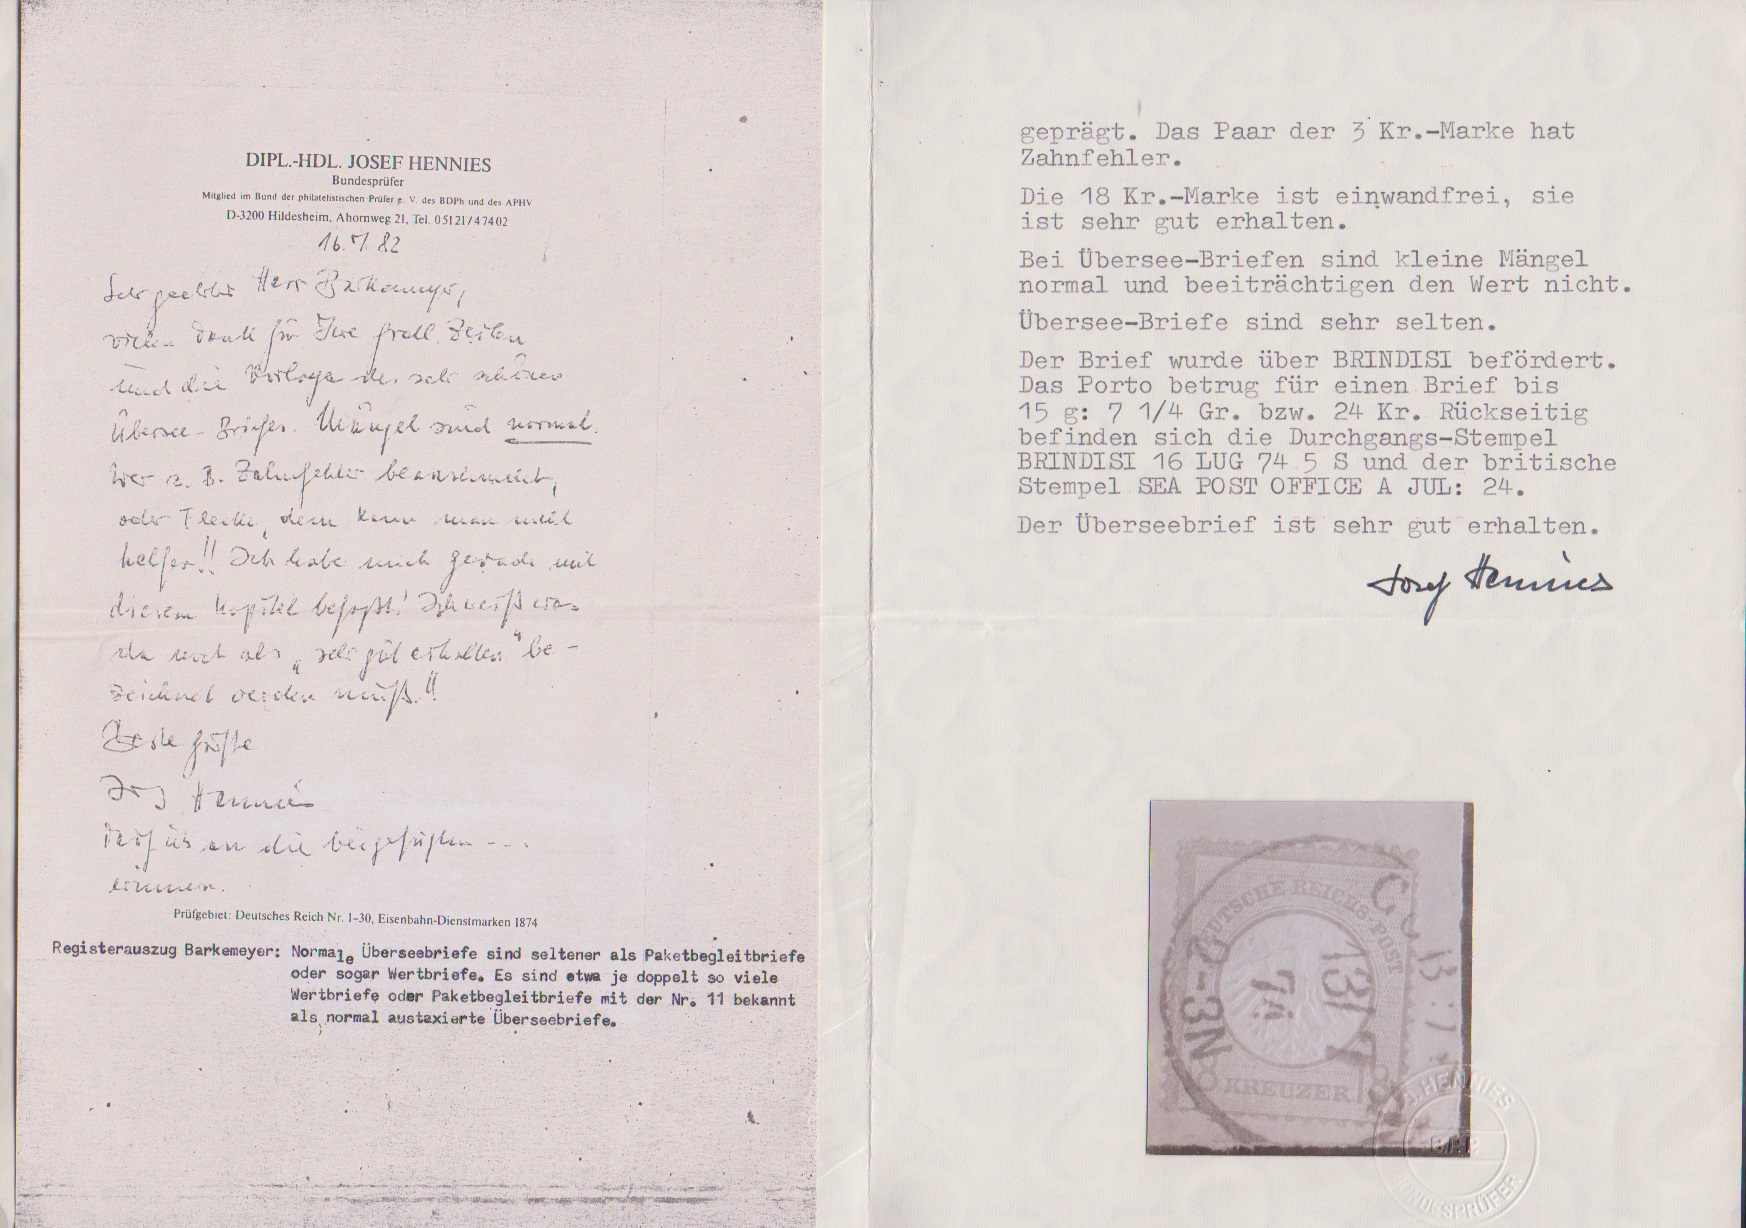 DIPL.-HDL. JOSEF HENNIES
Bundesprüfer
Mitglied im Bund der philatelistischen Prüfer e. V. des BDPh und des APHV
D-3200 Hildesheim, Ahornweg 21, Tel. 05121/47402
16.7.82
Sehr geehrter Herr Barkemeyer,
vielen Dank für Ihre frdl. Zeilen
und die Vorlage des sehr schönen
Übersee-Briefes. Mängel sind normal.
Wer z. B. Zahnfehler beanstandet,
oder Flecke, dem kann man nicht
helfen!! Ich habe mich gerade mit
diesem Kapitel befaßt! Ich weiß was
da noch als „sehr gut erhalten" be-
zeichnet werden muß!!
Beste Grüße
Josef Hennies
Darf ich an die beigefügten ---
erinnern.
Prüfgebiet: Deutsches Reich Nr. 1-30, Eisenbahn-Dienstmarken 1874
Registerauszug Barkemeyer: Normale Überseebriefe sind seltener als Paketbegleitbriefe
oder sogar Wertbriefe. Es sind etwa je doppelt so viele
Wertbriefe oder Paketbegleitbriefe mit der Nr. 11 bekannt
als normal austaxierte Überseebriefe.
geprägt. Das Paar der 3 Kr.-Marke hat
Zahnfehler.
Die 18 Kr.-Marke ist einwandfrei, sie
ist sehr gut erhalten.
Bei Übersee-Briefen sind kleine Mängel
normal und beeiträchtigen den Wert nicht.
Übersee-Briefe sind sehr selten.
Der Brief wurde über BRINDISI befördert.
Das Porto betrug für einen Brief bis
15 g: 7 1/4 Gr. bzw. 24 Kr. Rückseitig
befinden sich die Durchgangs-Stempel
BRINDISI 16 LUG 74 5 S und der britische
Stempel SEA POST OFFICE A JUL: 24.
Der Überseebrief ist sehr gut erhalten.
Josef Hennies
DEUTSCHE REICHS-POST
18 KREUZER 18
J. HENNIES
B.P.P.
BUNDESPRÜFER